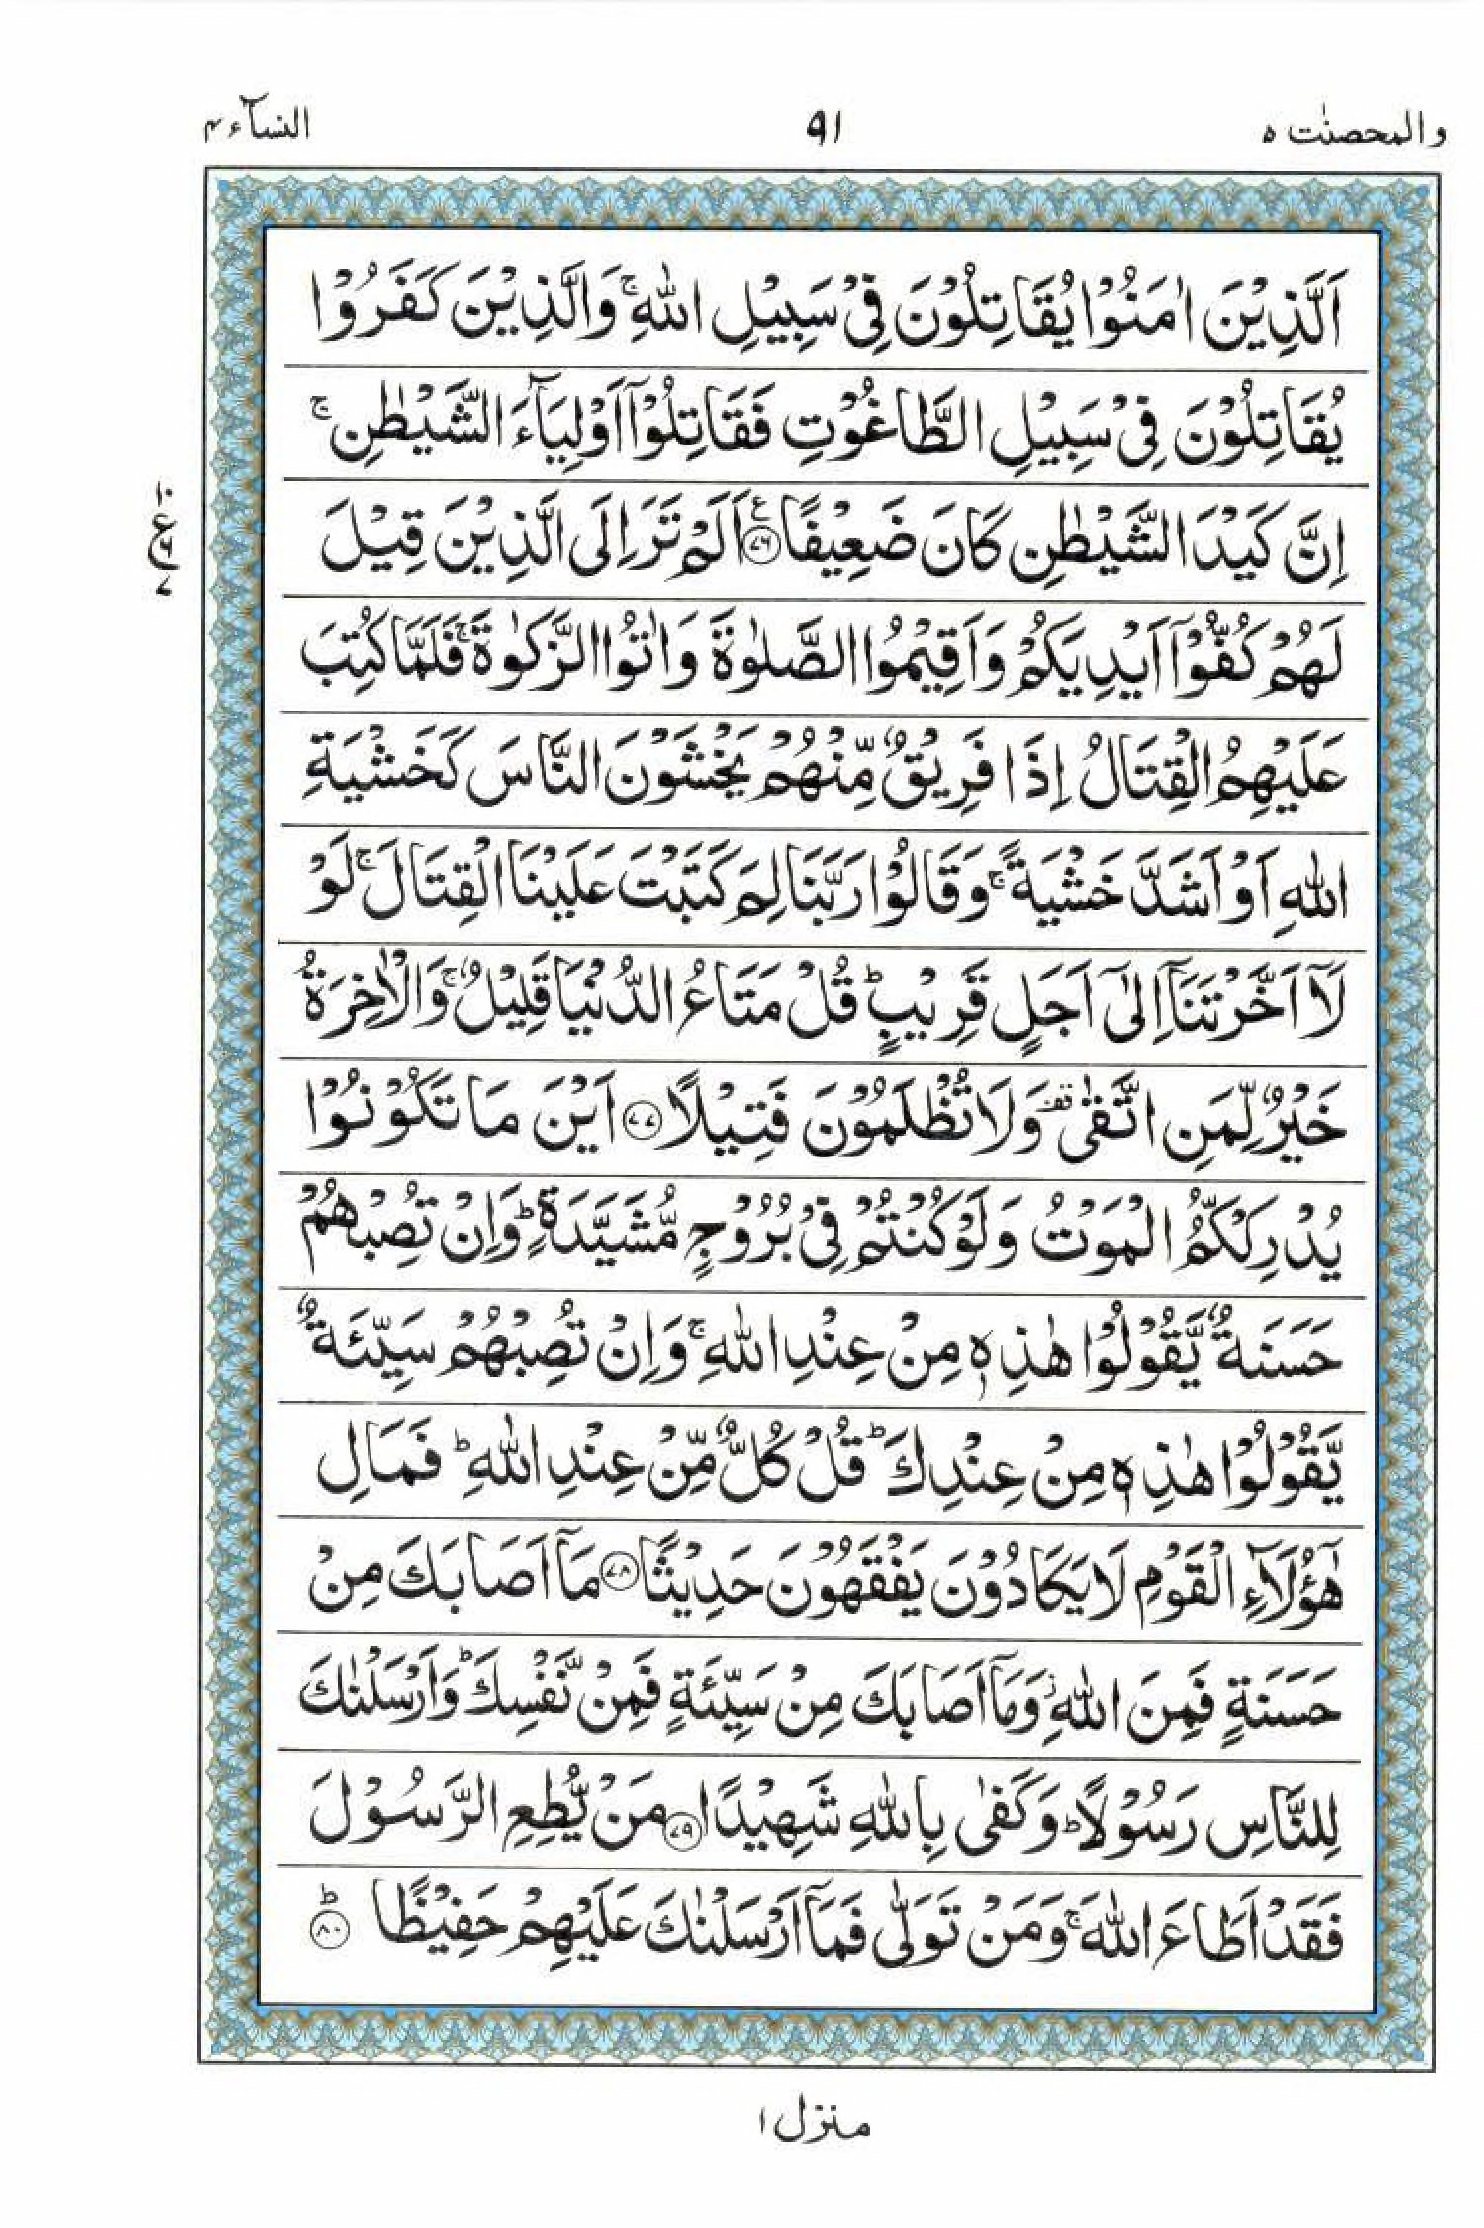 والمحصنٰت ٥
٩١
النسآء ٤
اَلَّذِیْنَ اٰمَنُوْا یُقَاتِلُوْنَ فِیْ سَبِیْلِ اللّٰهِ ۚ وَالَّذِیْنَ كَفَرُوْا
یُقَاتِلُوْنَ فِیْ سَبِیْلِ الطَّاغُوْتِ فَقَاتِلُوْۤا اَوْلِیَآءَ الشَّیْطٰنِ ۚ
اِنَّ كَیْدَ الشَّیْطٰنِ كَانَ ضَعِیْفًا ﴿۷۶﴾ اَلَمْ تَرَ اِلَی الَّذِیْنَ قِیْلَ
١٠
ع
٦
٧
لَهُمْ كُفُّوْۤا اَیْدِیَكُمْ وَاَقِیْمُوا الصَّلٰوةَ وَاٰتُوا الزَّكٰوةَ ۚ فَلَمَّا كُتِبَ
عَلَیْهِمُ الْقِتَالُ اِذَا فَرِیْقٌ مِّنْهُمْ یَخْشَوْنَ النَّاسَ كَخَشْیَةِ
اللّٰهِ اَوْ اَشَدَّ خَشْیَةً ۚ وَقَالُوْا رَبَّنَا لِمَ كَتَبْتَ عَلَیْنَا الْقِتَالَ ۚ لَوْ
لَاۤ اَخَّرْتَنَاۤ اِلٰۤی اَجَلٍ قَرِیْبٍ ؕ قُلْ مَتَاعُ الدُّنْیَا قَلِیْلٌ ۚ وَالْاٰخِرَةُ
خَیْرٌ لِّمَنِ اتَّقٰی ۫ وَلَا تُظْلَمُوْنَ فَتِیْلًا ﴿۷۷﴾ اَیْنَ مَا تَكُوْنُوْا
یُدْرِكْكُّمُ الْمَوْتُ وَلَوْ كُنْتُمْ فِیْ بُرُوْجٍ مُّشَیَّدَةٍ ؕ وَاِنْ تُصِبْهُمْ
حَسَنَةٌ یَّقُوْلُوْا هٰذِهٖ مِنْ عِنْدِ اللّٰهِ ۚ وَاِنْ تُصِبْهُمْ سَیِّئَةٌ
یَّقُوْلُوْا هٰذِهٖ مِنْ عِنْدِكَ ؕ قُلْ كُلٌّ مِّنْ عِنْدِ اللّٰهِ ؕ فَمَالِ
هٰۤؤُلَآءِ الْقَوْمِ لَا یَكَادُوْنَ یَفْقَهُوْنَ حَدِیْثًا ﴿۷۸﴾ مَاۤ اَصَابَكَ مِنْ
حَسَنَةٍ فَمِنَ اللّٰهِ ؗ وَمَاۤ اَصَابَكَ مِنْ سَیِّئَةٍ فَمِنْ نَّفْسِكَ ؕ وَاَرْسَلْنٰكَ
لِلنَّاسِ رَسُوْلًا ؕ وَكَفٰی بِاللّٰهِ شَهِیْدًا ﴿۷۹﴾ مَنْ یُّطِعِ الرَّسُوْلَ
فَقَدْ اَطَاعَ اللّٰهَ ۚ وَمَنْ تَوَلّٰی فَمَاۤ اَرْسَلْنٰكَ عَلَیْهِمْ حَفِیْظًا ؕ ﴿۸۰﴾
منزل ١